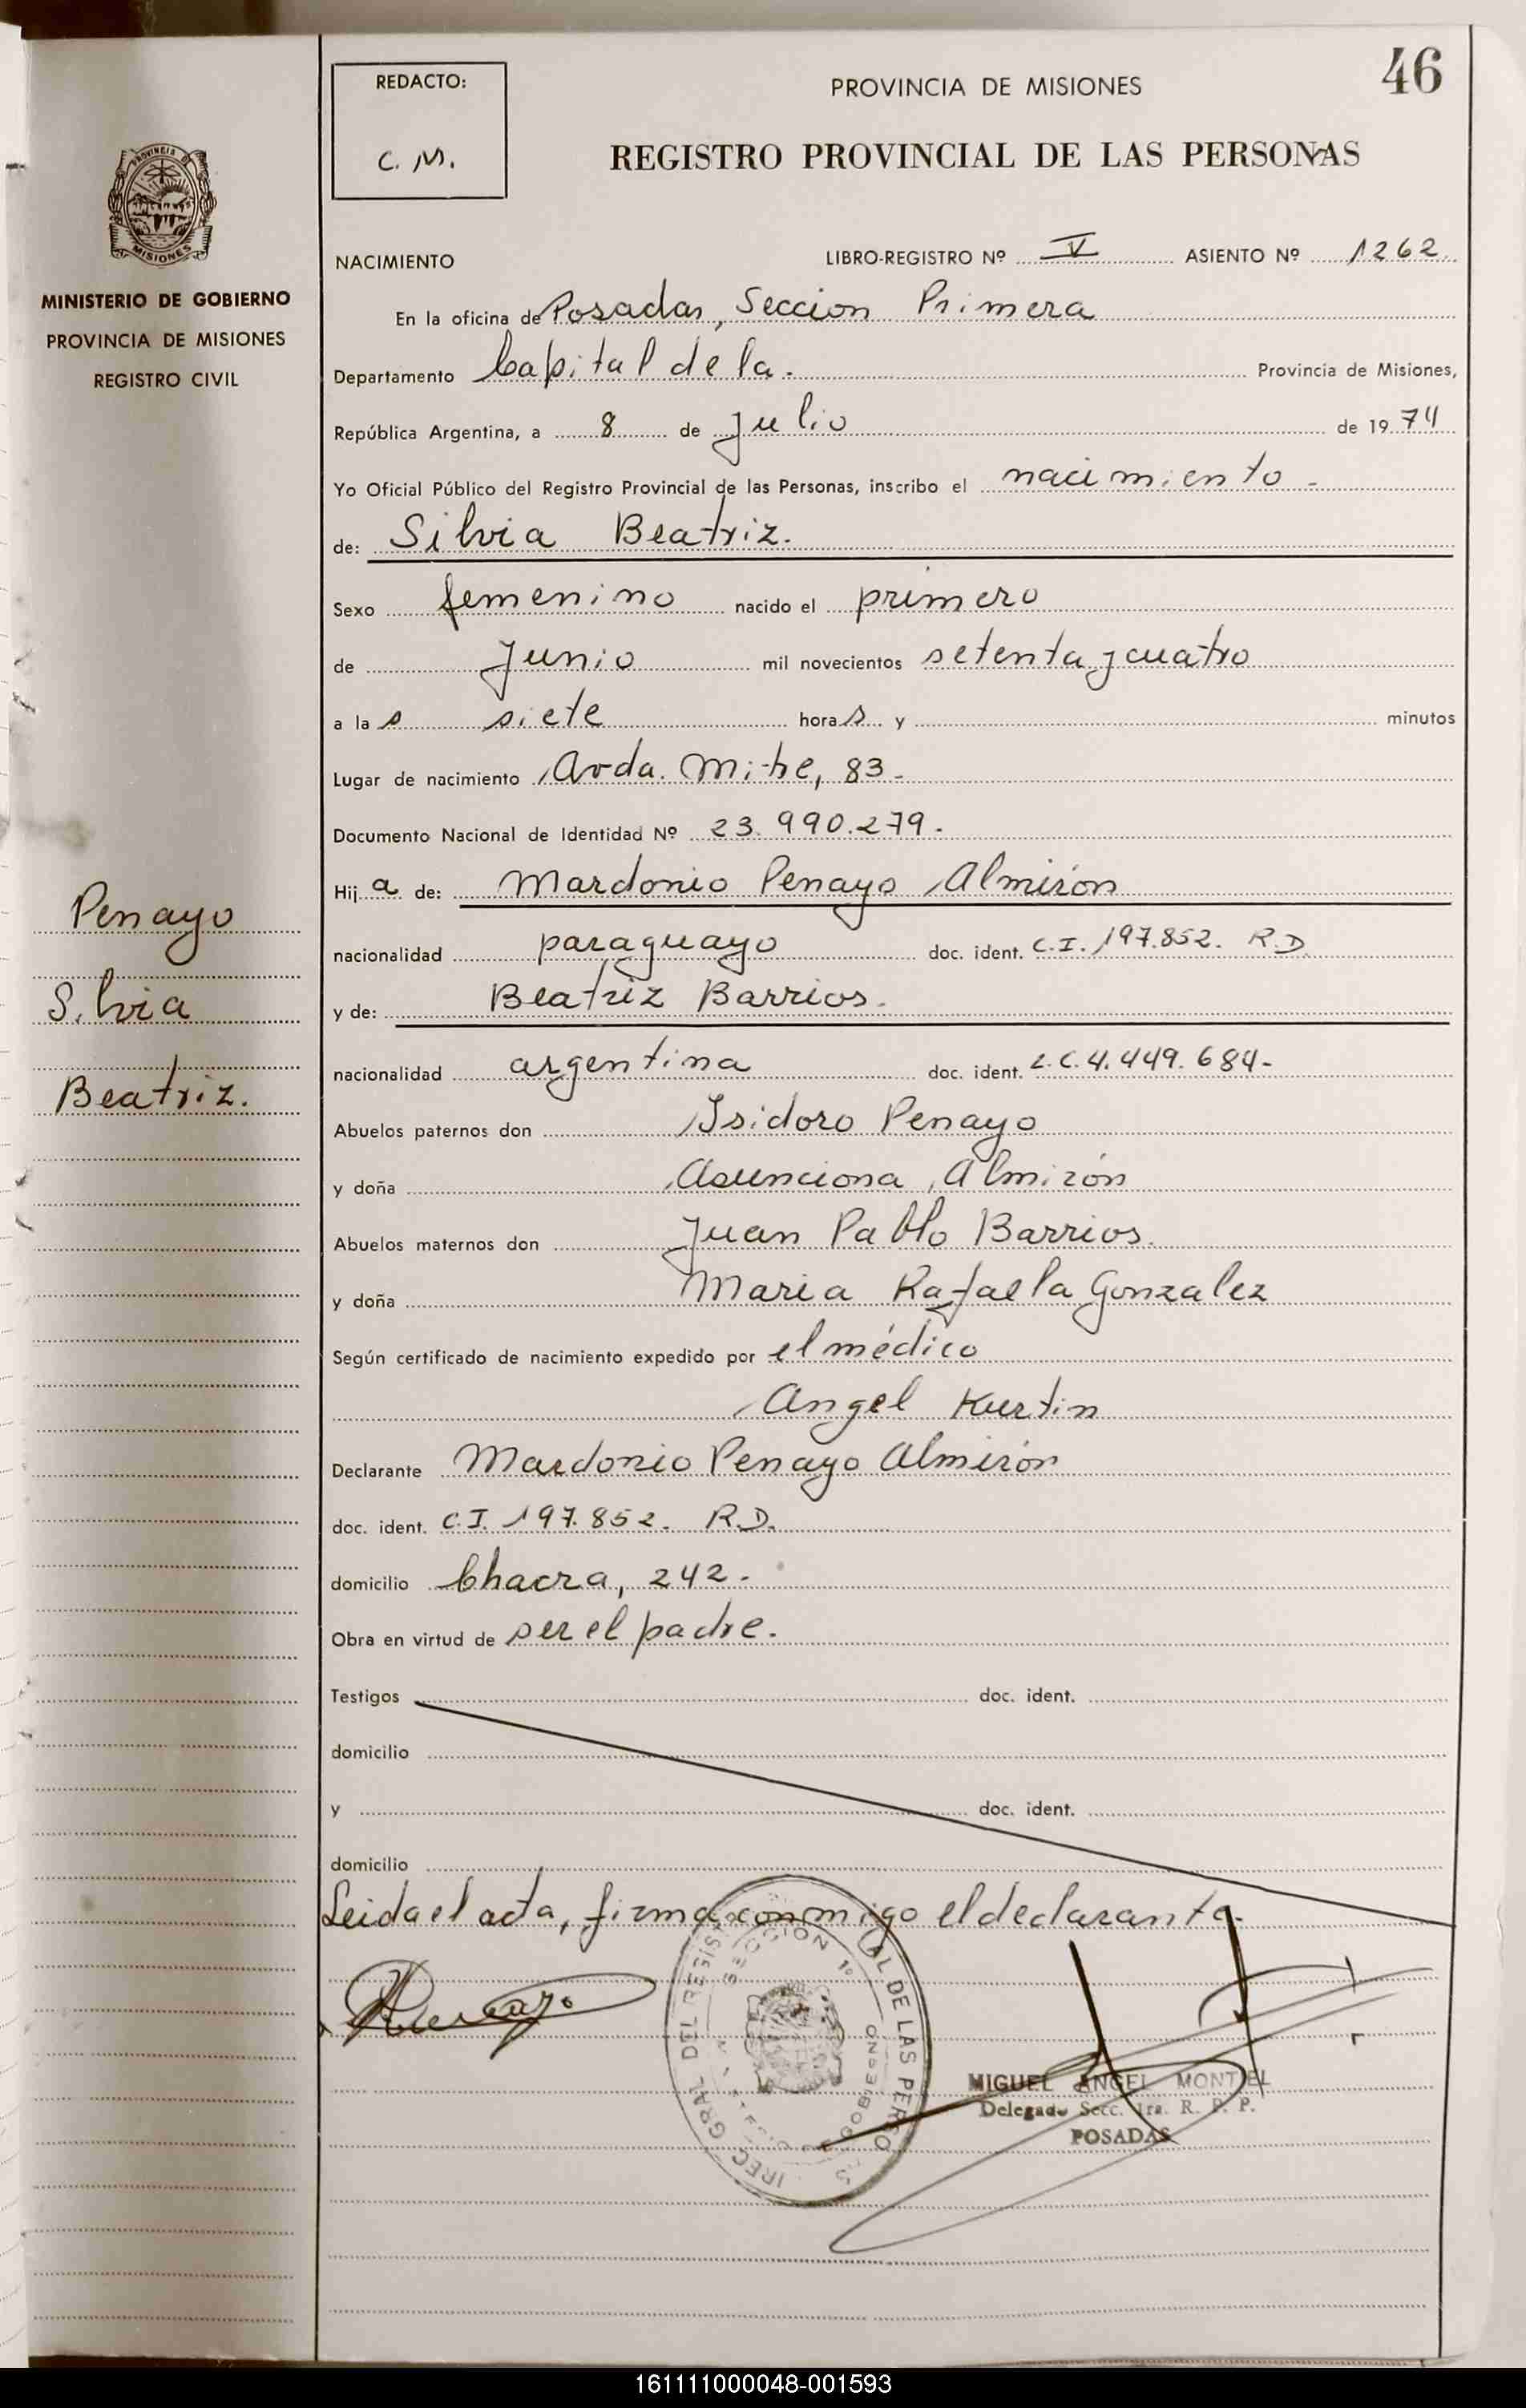 46
REDACTO:
C. M.
PROVINCIA DE MISIONES
REGISTRO PROVINCIAL DE LAS PERSONAS
PROVINCIA DE
MISIONES
MINISTERIO DE GOBIERNO
PROVINCIA DE MISIONES
REGISTRO CIVIL
Penayo
Silvia
Beatriz.
NACIMIENTO LIBRO-REGISTRO Nº V ASIENTO Nº 1262
En la oficina de Posadas, Seccion Primera
Departamento Capital de la. Provincia de Misiones,
República Argentina, a 8 de Julio de 1974
Yo Oficial Público del Registro Provincial de las Personas, inscribo el nacimiento -
de: Silvia Beatriz.
Sexo femenino nacido el primero
de Junio mil novecientos setenta y cuatro
a la s siete hora s y minutos
Lugar de nacimiento Avda. Mitre, 83 -
Documento Nacional de Identidad Nº 23.990.279.
Hij a de: Mardonio Penayo Almirón
nacionalidad paraguayo doc. ident. C.I. 197.852. R.D.
y de: Beatriz Barrios.
nacionalidad argentina doc. ident. L.C. 4.449.684-
Abuelos paternos don Isidoro Penayo
y doña Asunciona Almirón
Abuelos maternos don Juan Pablo Barrios.
y doña Maria Rafaela Gonzalez
Según certificado de nacimiento expedido por el médico
Angel Kurtin
Declarante Mardonio Penayo Almirón
doc. ident. C.I. 197.852. R.D.
domicilio Chacra, 242.
Obra en virtud de ser el padre.
Testigos doc. ident.
domicilio
y doc. ident.
domicilio
Leida el acta, firma conmigo el declarante.
MIGUEL ANGEL MONTIEL
Delegado Secc. 1ra. R. P. P.
POSADAS
161111000048-001593